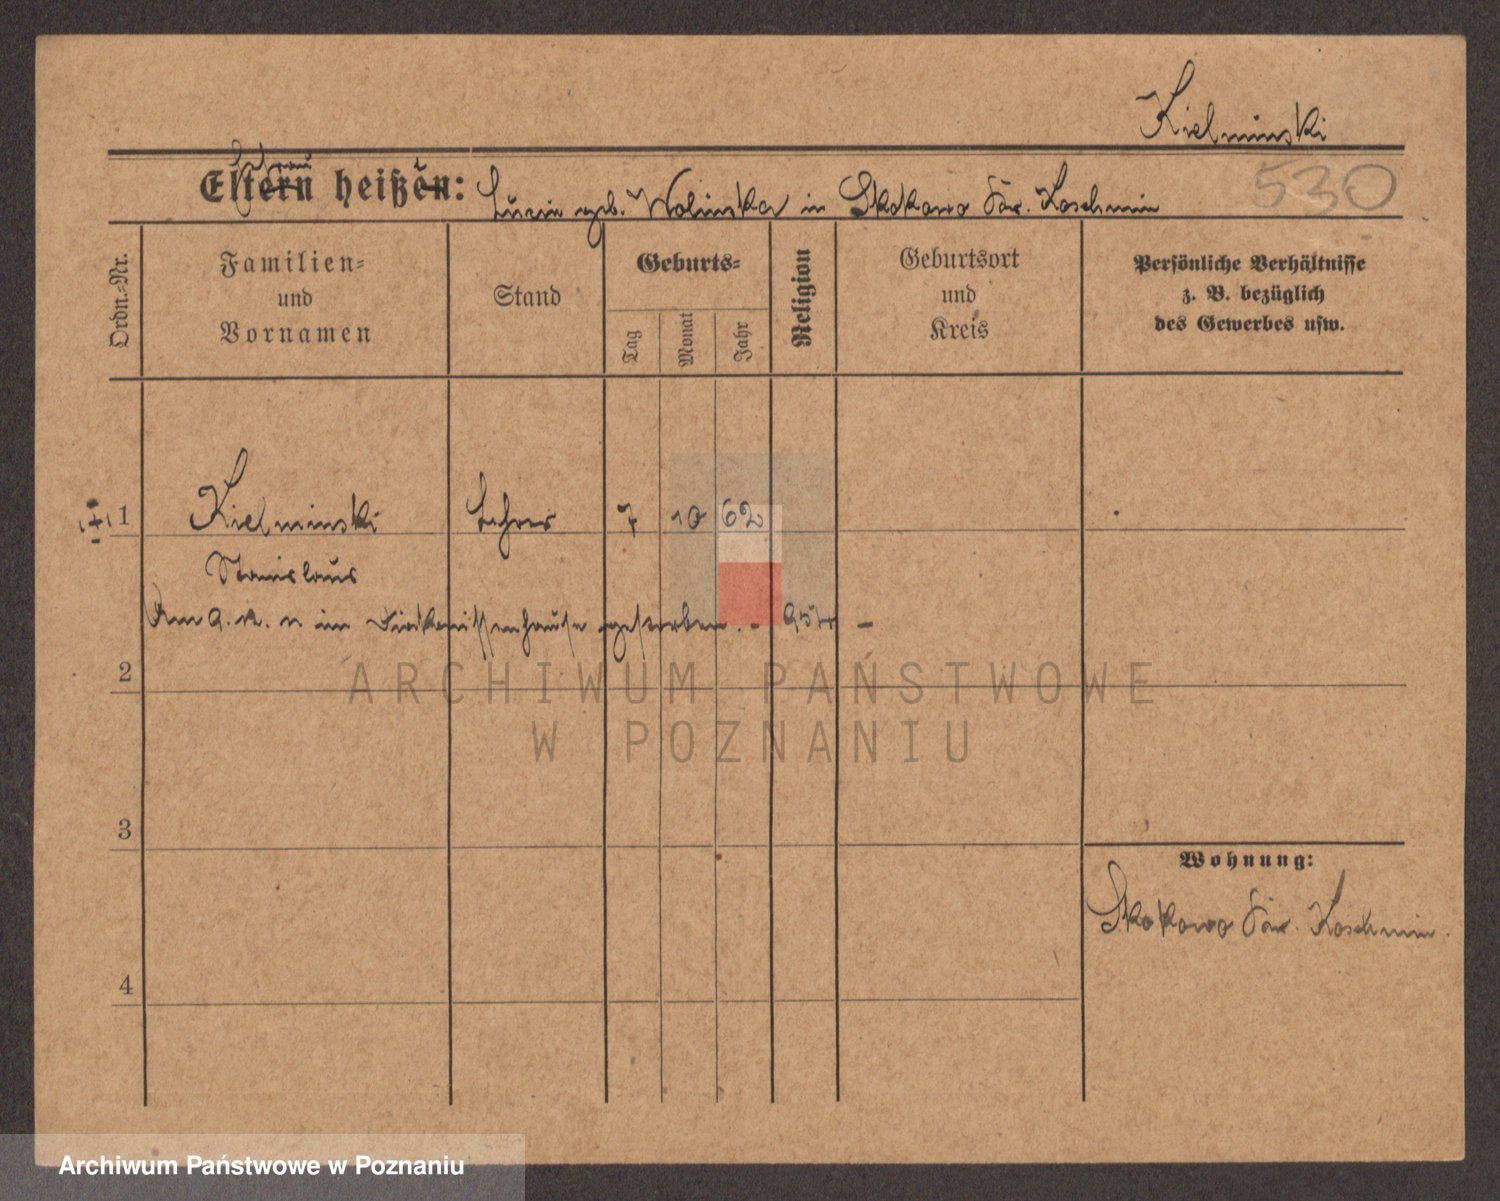 Kielminski
530
Eltern heißen: geb. Wolinska in Skokowo Kr. Koschmin
Ordn.-Nr.
Familien-
und
Vornamen
Stand
Geburts-
Tag
Monat
Jahr
Religion
Geburtsort
und
Kreis
Persönliche Verhältnisse
z. B. bezüglich
des Gewerbes usw.
1 Kielminski Lehrer 7 10 62
Stanislaus
Am im Diakonissenhause gestorben. -
2
ARCHIWUM PAŃSTWOWE
W POZNANIU
3
Wohnung:
Skokowo Kr. Koschmin.
4
Archiwum Państwowe w Poznaniu